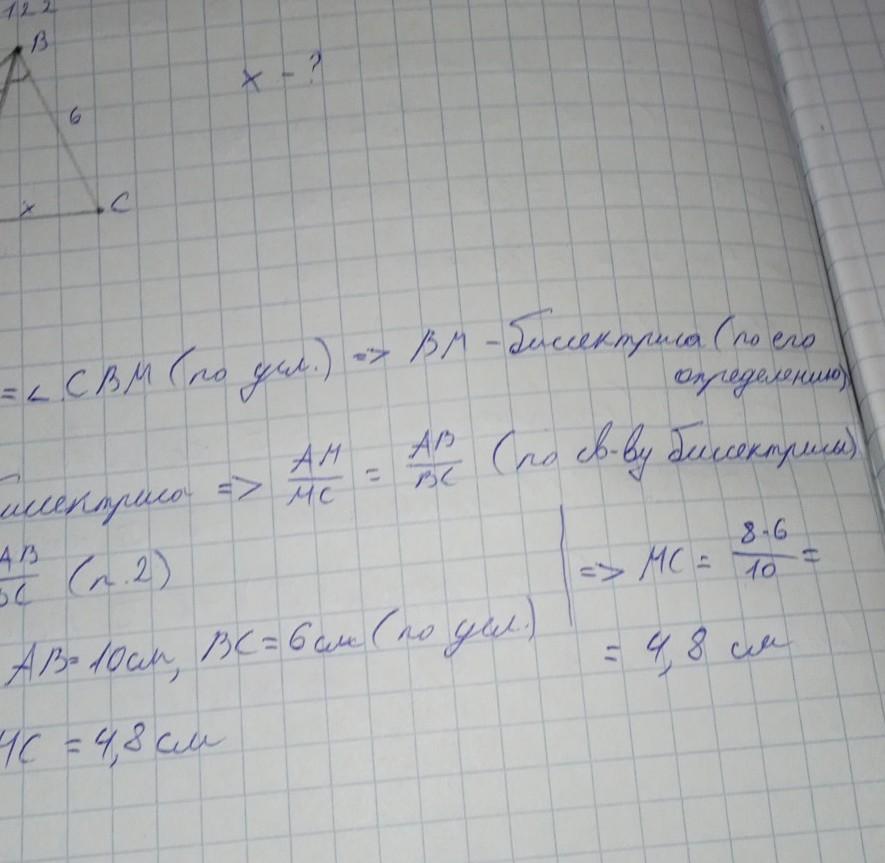 122
B
x - ?
6
x
C
= ∠CBM (по усл.) => BM - биссектриса (по его
определению)
иссектриса => AM/MC = AB/BC (по св-ву биссектрисы)
AB/BC (п.2)
=> MC = 8·6/10 =
AB=10см, BC=6см (по усл.)
= 4,8 см
MC = 4,8 см